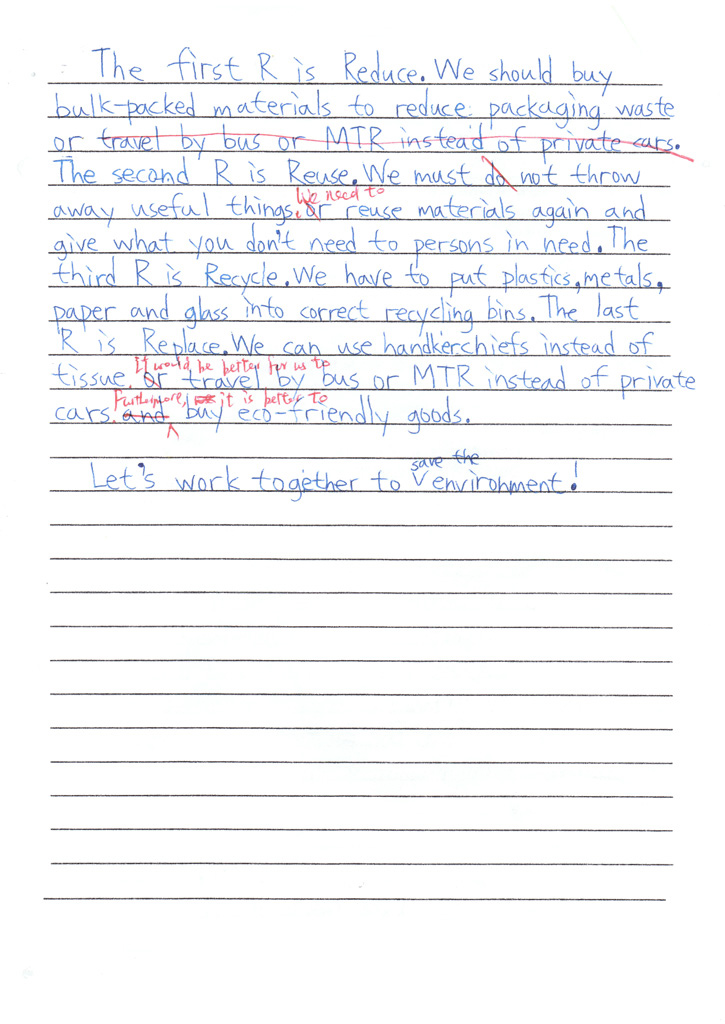 The first R is Reduce. We should buy
bulk-packed materials to reduce packaging waste
or travel by bus or MTR instead of private cars.
The second R is Reuse. We must do not throw
We need to
away useful things. or reuse materials again and
give what you don't need to persons in need. The
third R is Recycle. We have to put plastics, metals,
paper and glass into correct recycling bins. The last
R is Replace. We can use handkerchiefs instead of
It would be better for us to
tissue. or travel by bus or MTR instead of private
Furthermore, it is better to
cars. and buy eco-friendly goods.
save the
Let's work together to environment!